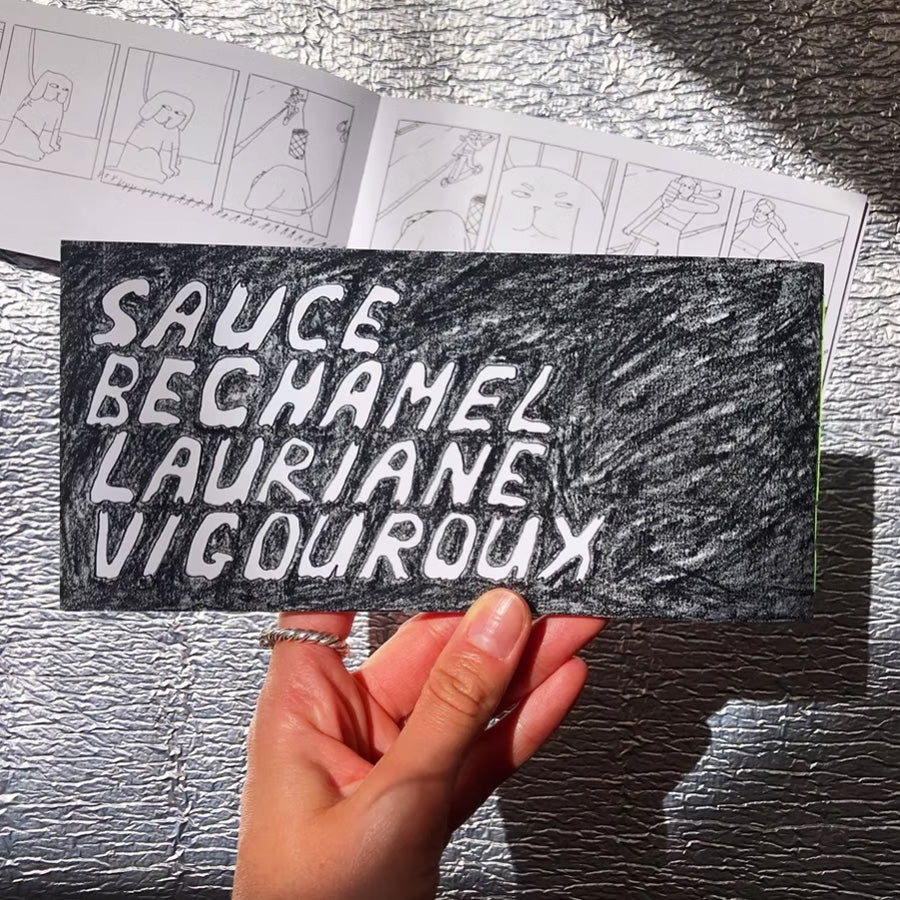 SAUCE
BECHAMEL
LAURIANE
VIGOUROUX